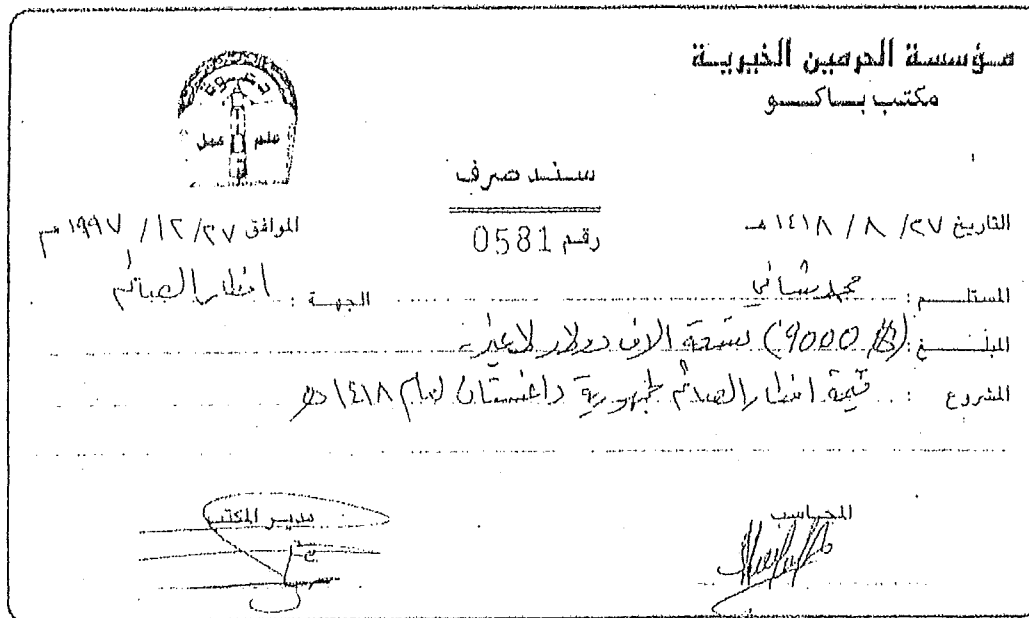 مؤسسة الحرمين الخيرية
مكتب باكو
دعوة
علم عمل
سند صرف
رقم 0581
التاريخ ٢٧/ ٨ / ١٤١٨ هـ الموافق ٢٧/ ١٢/ ١٩٩٧ م
المستلم : محمد شافي الجهة : افطار الصائم
المبلغ : ($ 9000) تسعة الاف دولار لاغير
المشروع : قيمة افطار الصائم لجمهورية داغستان لعام ١٤١٨ هـ
المحاسب مدير المكتب